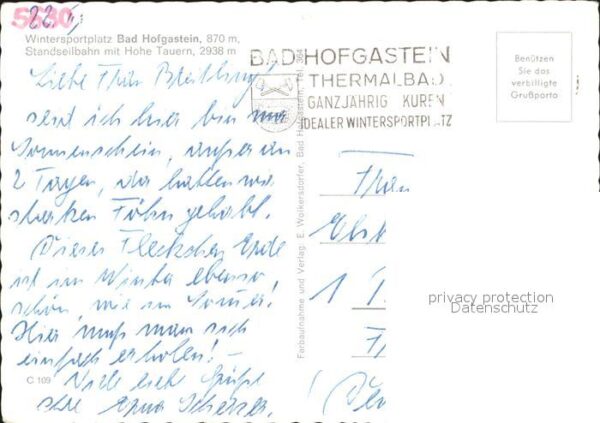 22. I.
5630
Wintersportplatz Bad Hofgastein, 870 m,
Standseilbahn mit Hohe Tauern, 2938 m
Liebe Frau
seit ich hier bin nur
Sonnenschein, außer an
2 Tagen, da hatten wir
starken Föhn gehabt.
Dieses Fleckchen Erde
ist im Winter ebenso
schön, wie im Sommer.
Hier muß man sich
einfach erholen! –
Viele liebe Grüße
Ihre Erna
C 109
Farbaufnahme und Verlag: E. Wolkersdorfer, Bad Hofgastein, Tel. 364
BAD HOFGASTEIN
THERMALBAD
GANZJÄHRIG KUREN
IDEALER WINTERSPORTPLATZ
Benützen
Sie das
verbilligte
Grußporto
Frau
1
privacy protection
Datenschutz